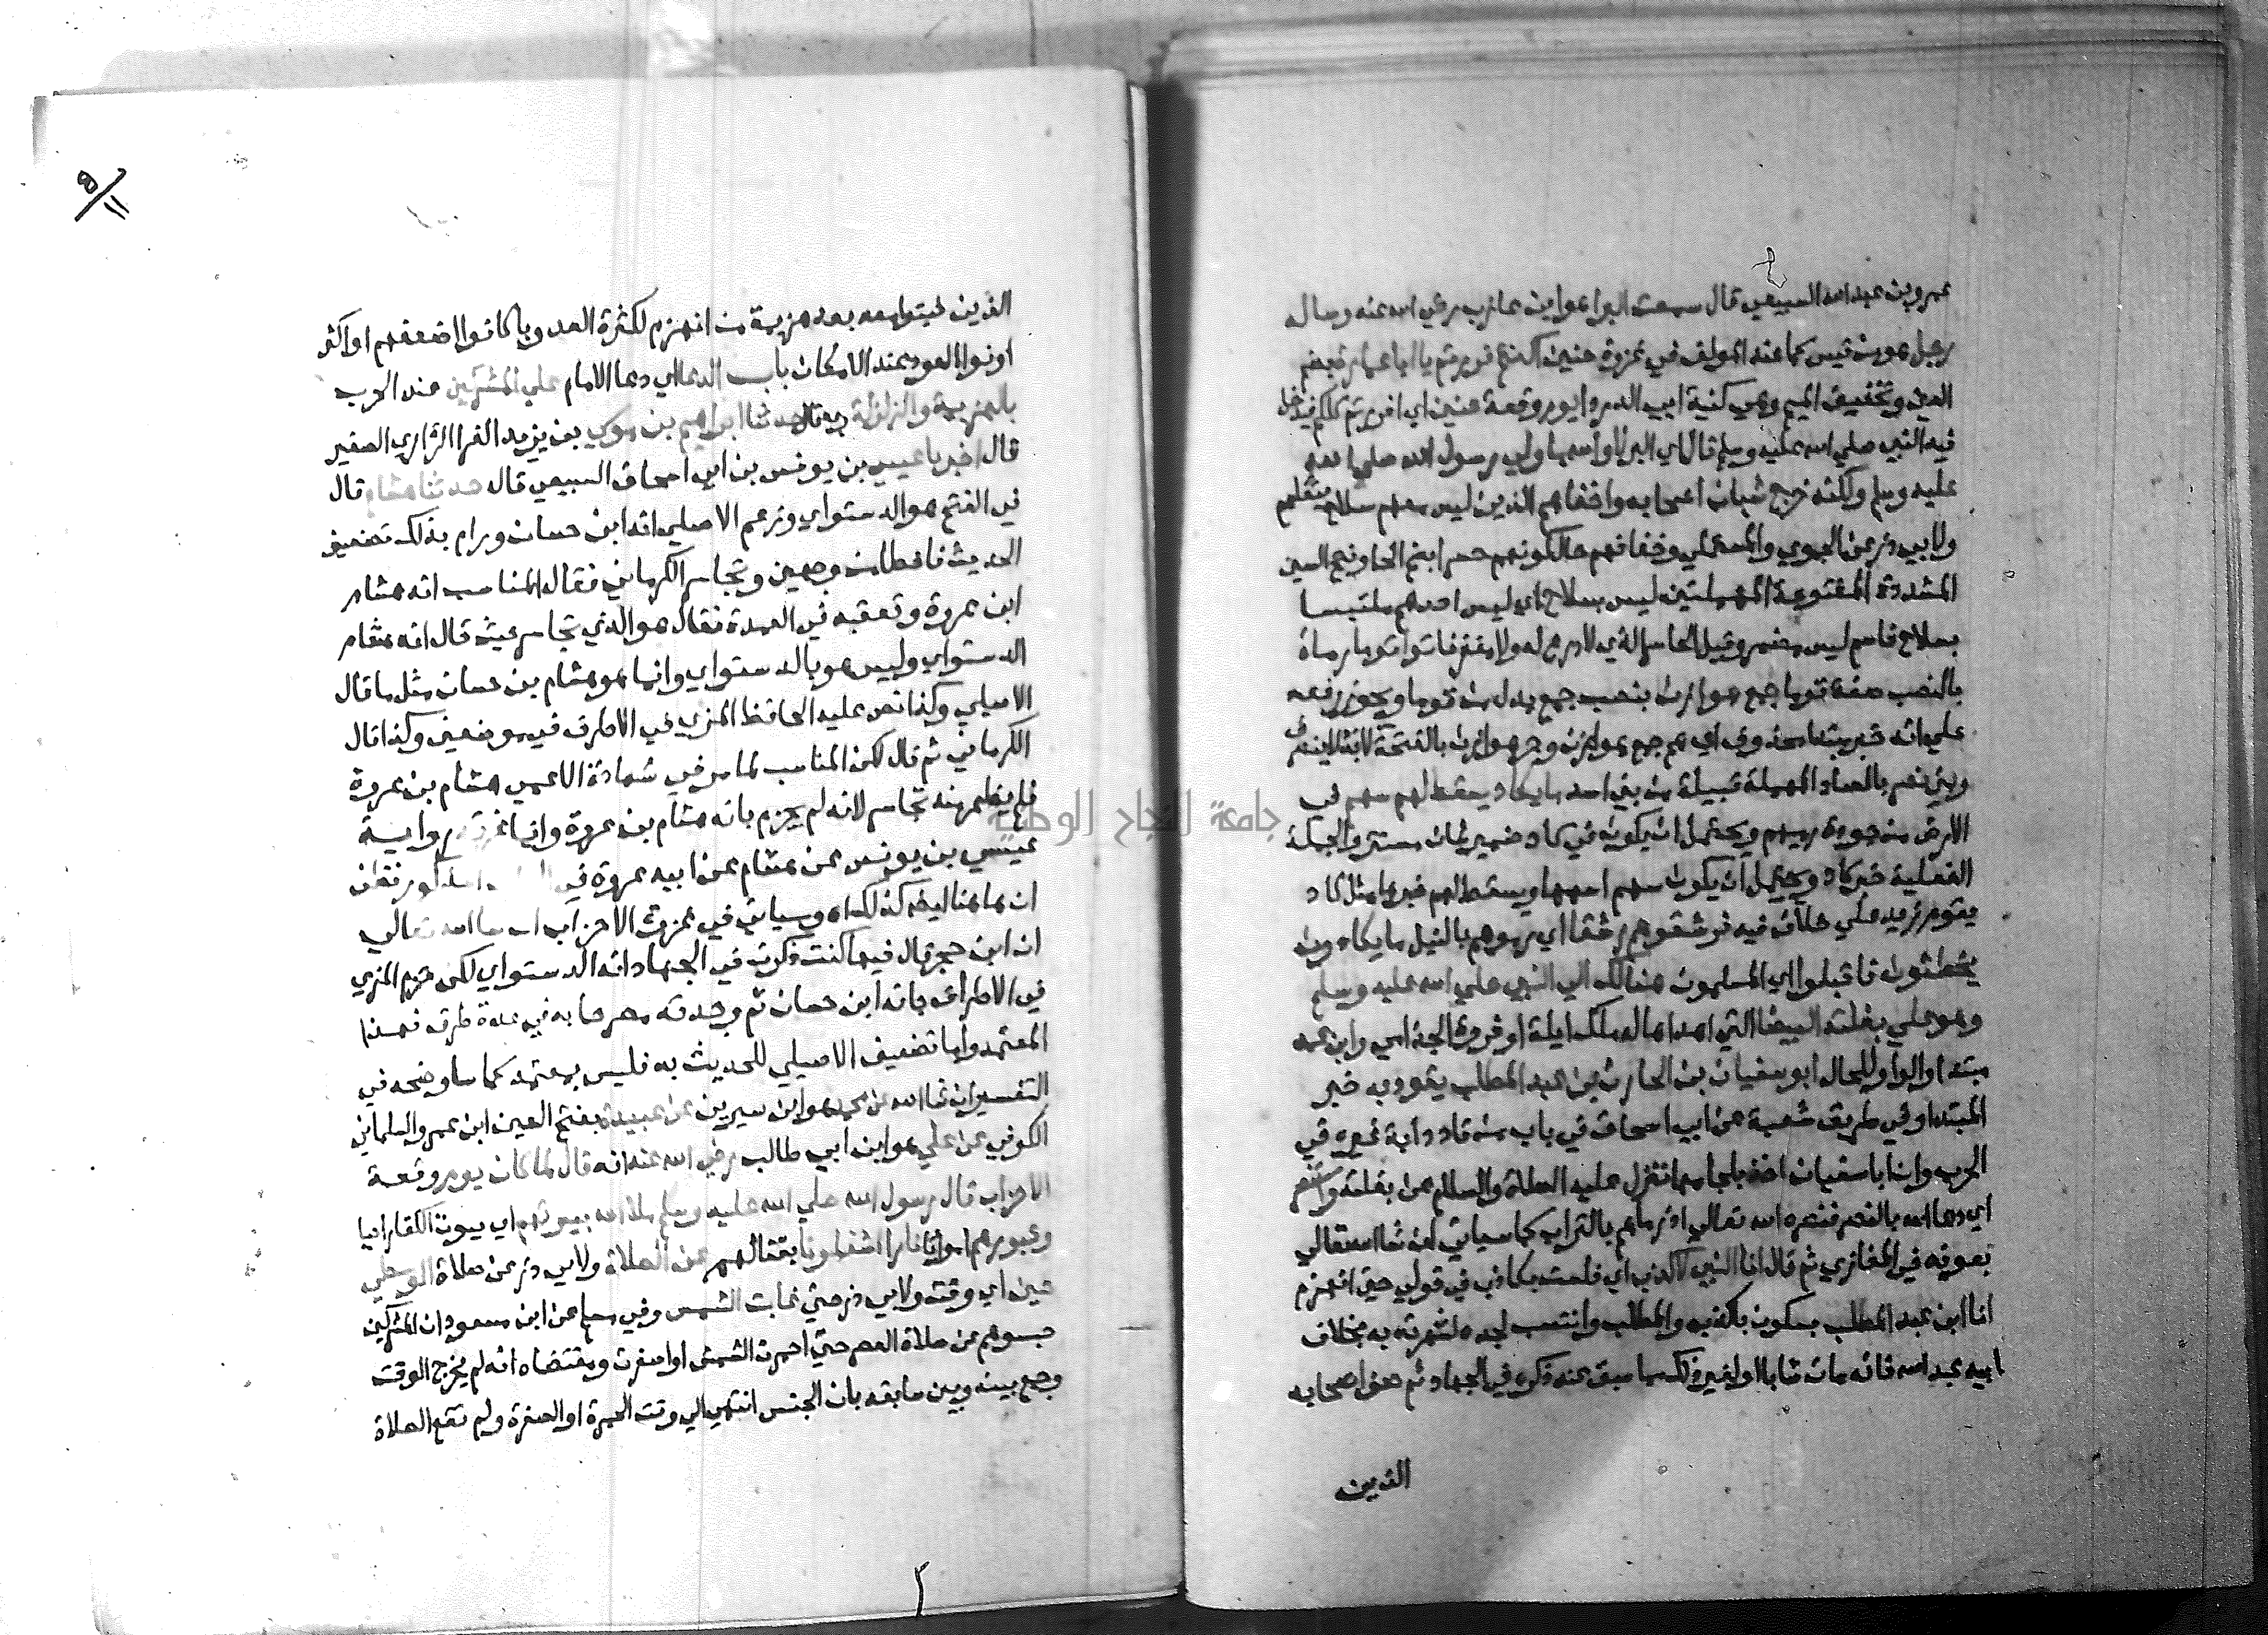 عمرو بن عبد الله السبيعي قال سمعت البرا هو ابن عازب رضي الله عنه وساله
رجل هو من قيس كما عند المولف في غزوة حنين اكنتم فررتم يا ابا عمارة بضم
العين وتخفيف الميم وهي كنية ابي البرا يوم وقعة حنين اي افررتم كلكم فيدخل
فيه النبي صلي الله عليه وسلم قال اي البرا لا والله ما ولي رسول الله صلي الله
عليه وسلم ولكنه خرج شبان اصحابه واخفاهم الذين ليس معهم سلاح يثقلهم
ولابي ذر عن الحموي والمستملي وخفافهم حال كونهم حسرا بضم الحا وفتح السين
المشددة المفتوحة المهملتين ليس بسلاح اي ليس احدهم ملتبسا
بسلاح فاسم ليس مضمر وقيل الحاسر الذي لا درع له ولا مغفر فاتوا قوما رماة
بالنصب صفة قوما جمع هوازن بنصب جمع بدل من قوما ويجوز رفعه
علي انه خبر مبتدا محذوف اي هم جمع هوازن وجر هوازن بالفتحة لانه لا ينصرف
وبني نصر بالصاد المهملة قبيلة من بني اسد ما يكاد يسقط لهم سهم في
الارض من جودة رميهم ويحتمل ان يكون في كاد ضمير شان مستتر والجملة
الفعلية خبر كاد ويحتمل ان يكون سهم اسمها ويسقط لهم خبرها مثل كاد
يقوم زيد علي خلاف فيه فرشقوهم رشقا اي رموهم بالنبل ما يكادون
يخطئون فاقبلوا اي المسلمون هنالك الي النبي صلي الله عليه وسلم
وهو علي بغلته البيضا التي اهداها له ملك ايلة او فروة الجذامي وابن عمه
مبتدا والواو للحال ابو سفيان بن الحارث بن عبد المطلب يقود به خبر
المبتدا وفي طريق شعبة عن ابي اسحاق في باب من قاد دابة غيره في
الحرب وان ابا سفيان اخذ بلجامها فنزل عليه الصلاة والسلام عن بغلته واستنصر
اي دعا الله بالنصر فنصره الله تعالي اذ رماهم بالتراب كما سياتي ان شا الله تعالي
بعونه في المغازي ثم قال انا النبي لا كذب اي فلست بكاذب في قولي حتي انهزم
انا ابن عبد المطلب بسكون با كذب والمطلب وانتسب لجده لشهرته به بخلاف
ابيه عبد الله فانه مات شابا او لغير ذلك مما سبق عند ذكره في الجهاد ثم صف اصحابه
الذين
الذين ثبتوا معه بعد هزيمة من انهزم لكثرة العدو بان كانوا ضعفهم او اكثر
او نووا العود عند الامكان باب الدعا اي دعا الامام علي المشركين عند الحرب
بالهزيمة والزلزلة وبه قال حدثنا ابراهيم بن موسي بن يزيد الفرا الرازي الصغير
قال اخبرنا عيسي بن يونس بن ابي اسحاق السبيعي قال حدثنا هشام قال
في الفتح هو الدستواي وزعم الاصيلي انه ابن حسان ورام بذلك تضعيف
الحديث فاخطا من وجهين وتجاسر الكرماني فقال المناسب انه هشام
ابن عروة وتعقبه في العمدة فقال هو الذي تجاسر حيث قال انه هشام
الدستواي وليس هو بالدستواي وانما هو هشام بن حسان مثل ما قال
الاصيلي وكذا نص عليه الحافظ المزي في الاطراف في موضعين وكذا قال
الكرماني ثم قال لكن المناسب لما مر في شهادة الاعمي هشام بن عروة
فلم يظهر منه تجاسر لانه لم يجزم بانه هشام بن عروة وانما غرته رواية
عيسي بن يونس عن هشام عن ابيه عروة في المذكور فظن
ان ما هنا ليضا كذلك وسياتي في غزوة الاحزاب ان شا الله تعالي
ان ابن حجر قال فيها كنت ذكرت في الجهاد انه الدستواي لكن جزم المزي
في الاطراف بانه ابن حسان ثم وجدته مصرحا به في عدة طرق فهذا
المعتمد واما تضعيف الاصيلي للحديث به فليس بمعتمد كما ساوضحه في
التفسير ان شا الله عن محمد هو ابن سيرين عن عبيدة بفتح العين ابن عمرو السلماني
الكوفي عن علي هو ابن ابي طالب رضي الله عنه انه قال لما كان يوم وقعة
الاحزاب قال رسول الله صلي الله عليه وسلم ملا الله بيوتهم اي بيوت الكفار احيا
وقبورهم امواتا نارا اشغلونا بقتالهم عن الصلاة ولابي ذر عن صلاة الوسطي
حين اي وقت ولابي ذر حتي غابت الشمس وفي مسلم عن ابن مسعود ان المشركين
حبسوهم عن صلاة العصر حتي احمرت الشمس او اصفرت ومقتضاه انه لم يخرج الوقت
وجمع بينه وبين سابقه بان الحبس انتهي الي وقت الحمرة او الصفرة ولم تقع الصلاة
جامعة النجاح الوطنية